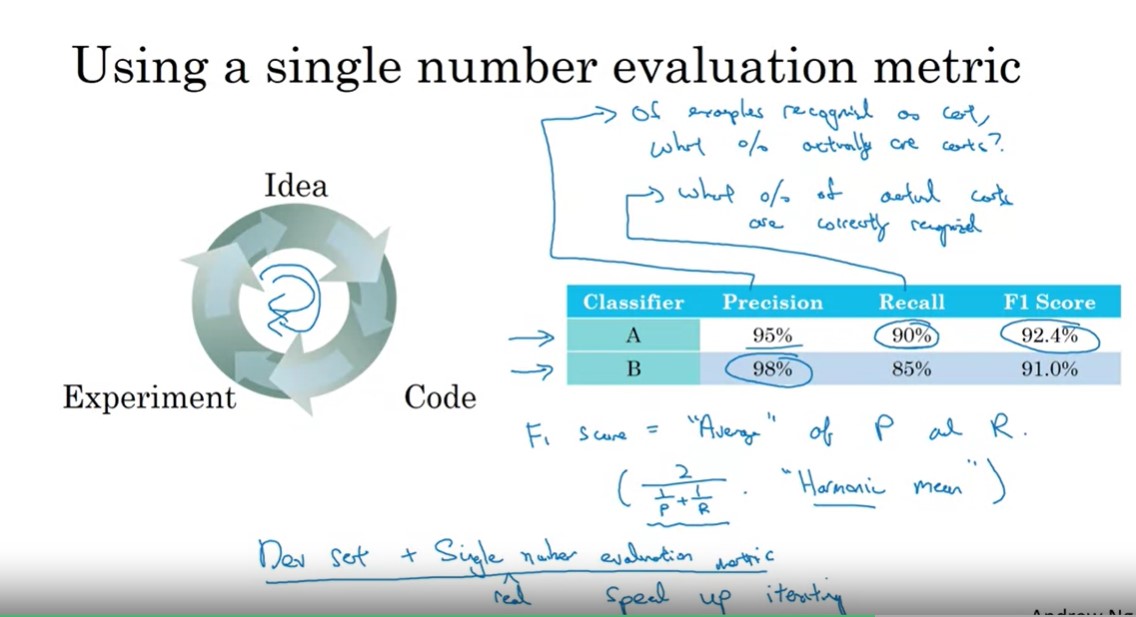 Using a single number evaluation metric
Of examples recognized as cat,
what % actually are cats?
what % of actual cats
are correctly recognized
Idea
Experiment
Code
Classifier Precision Recall F1 Score
A 95% 90% 92.4%
B 98% 85% 91.0%
F1 score = "Average" of P and R.
( 2 / (1/P + 1/R) . "Harmonic mean" )
Dev set + Single number evaluation metric
real speed up iterating
Andrew Ng